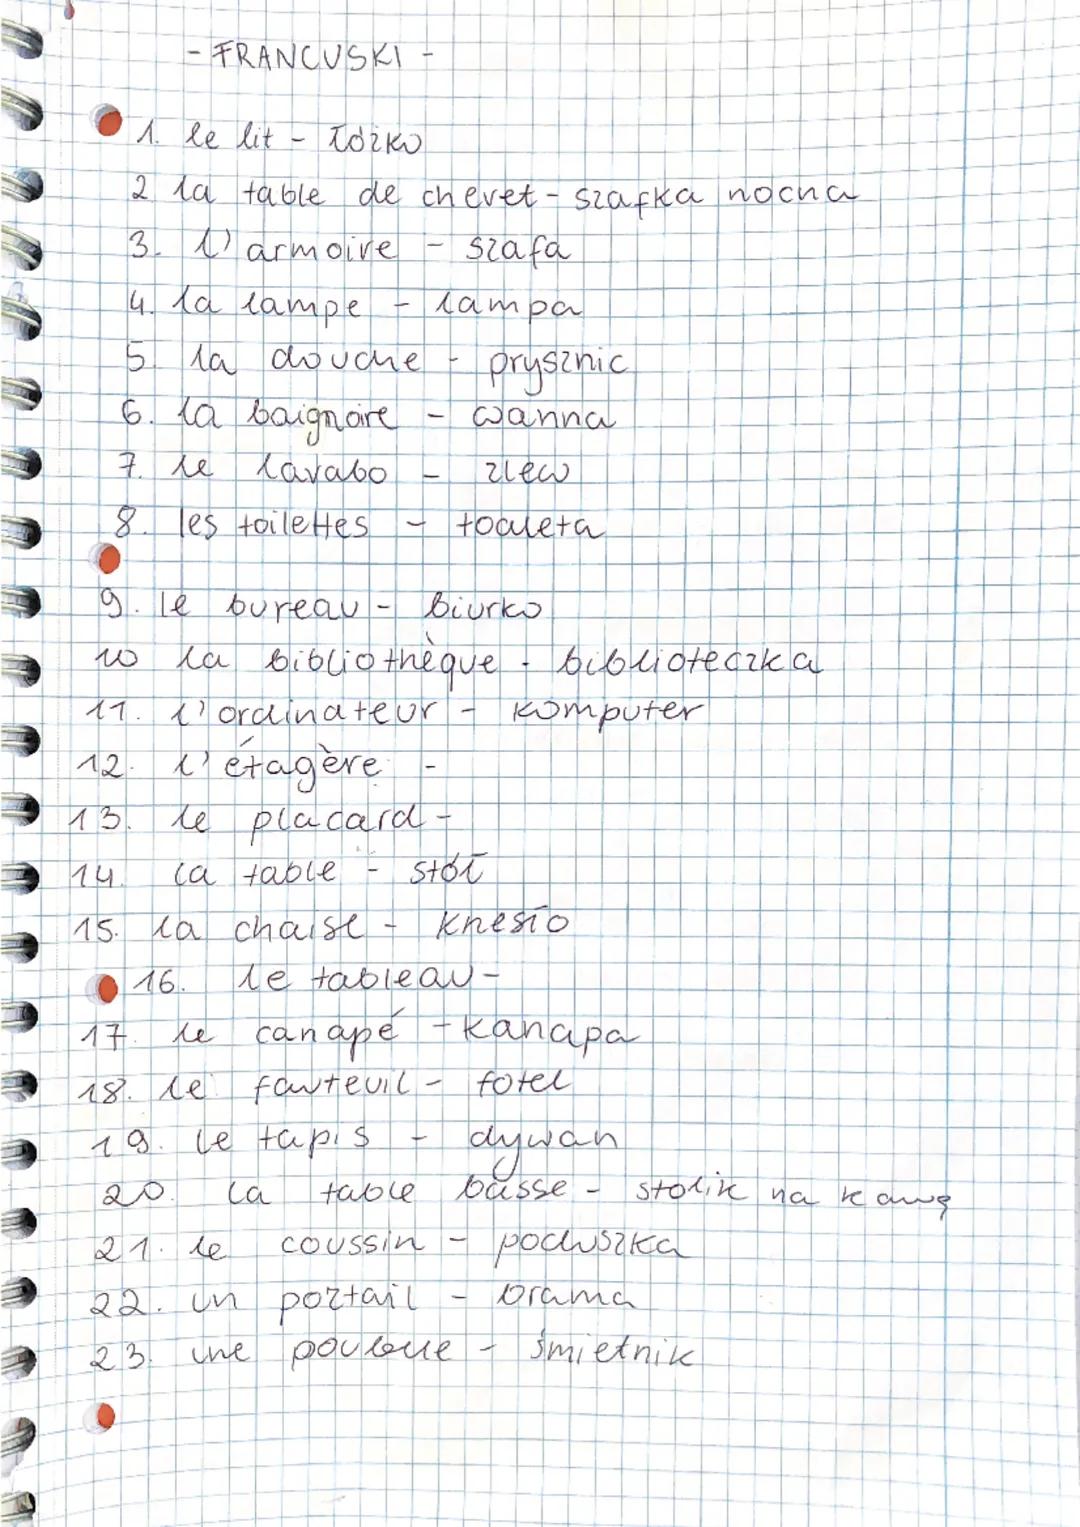 - FRANCUSKI -
1. le lit - łóżko
2 la table de chevet - szafka nocna
3. l'armoire - szafa
4. la lampe - lampa
5. la douche - prysznic
6. la baignoire - wanna
7. le lavabo - zlew
8. les toilettes - toaleta
9. le bureau - biurko
10 la bibliothèque - biblioteczka
11. l'ordinateur - komputer
12. l'étagère -
13. le placard -
14. la table - stół
15. la chaise - krzesło
16. le tableau -
17. le canapé - kanapa
18. le fauteuil - fotel
19. le tapis - dywan
20. la table basse - stolik na kawę
21. le coussin - poduszka
22. un portail - brama
23. une poubelle - śmietnik